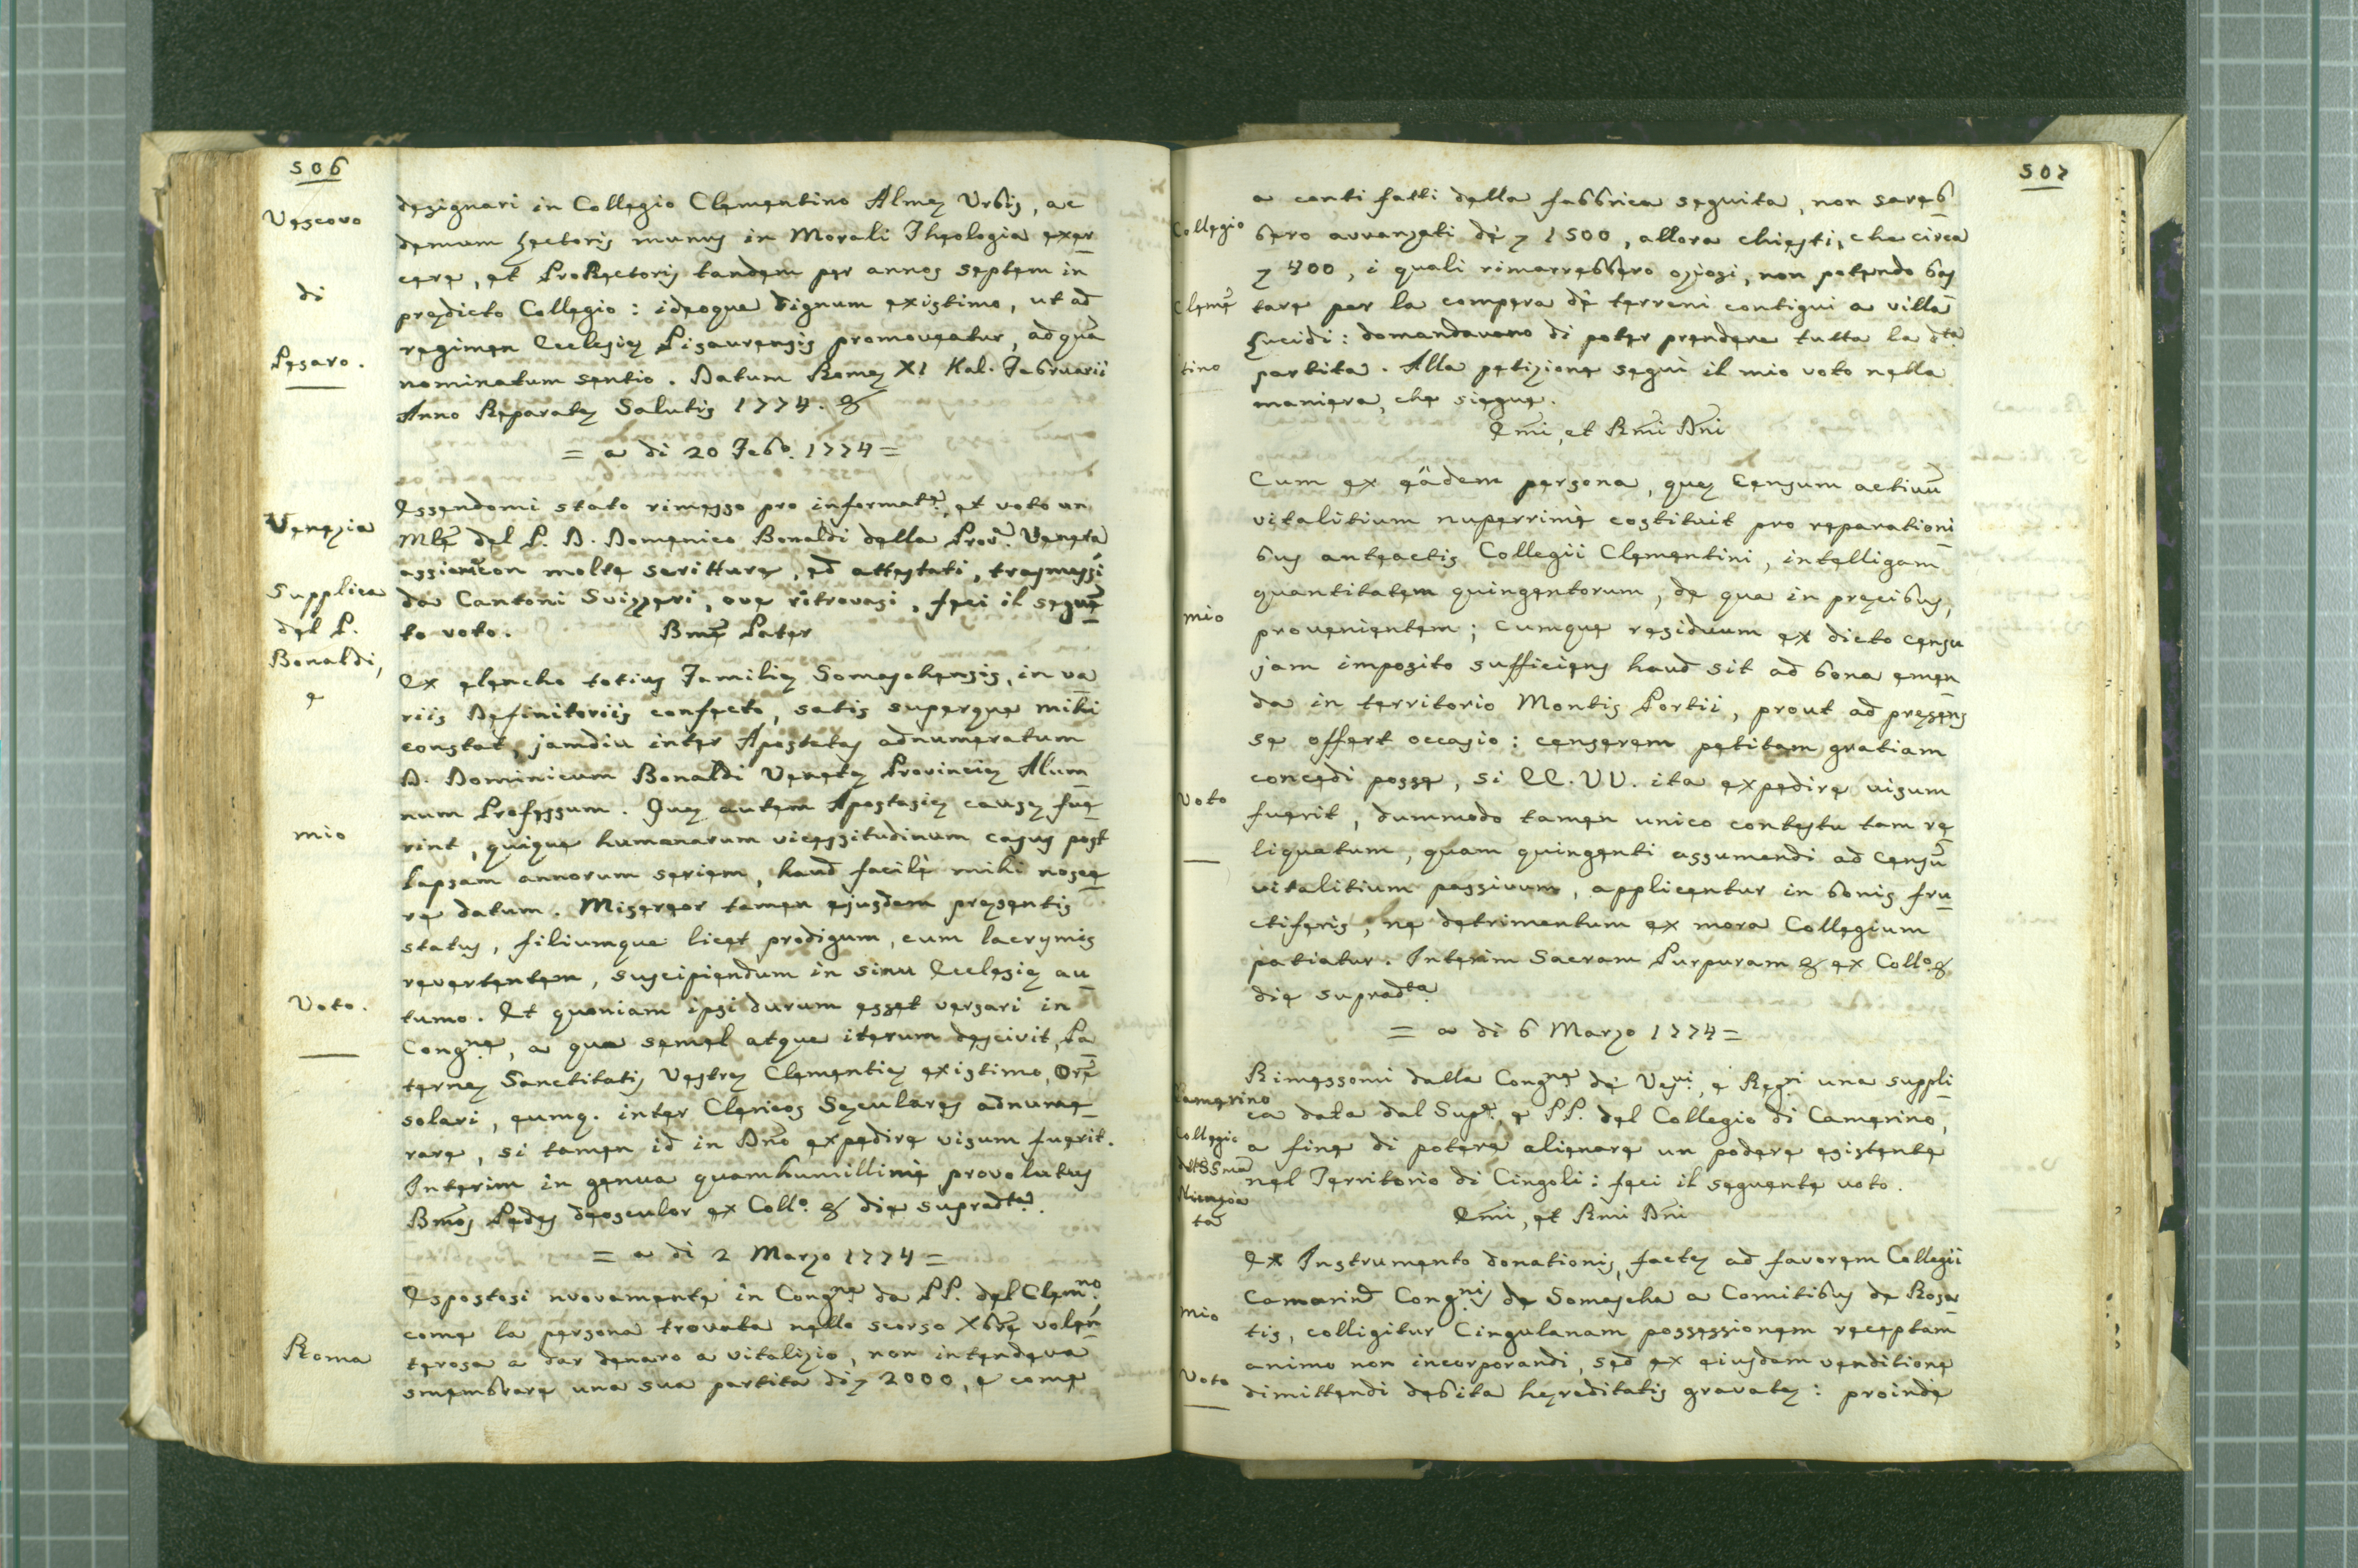 506
Vescovo
di
Pesaro.
designari in Collegio Clementino Almę Urbis, ac
demum Lectoris munus in Morali Theologia exer
cere, et ProRectoris tandem per annos septem in
prędicto Collegio: ideoque dignum existimo, ut ad
regimen Ecclesię Pisaurensis promoveatur, ad qua͂
nominatum sentio. Datum Romę XI Kal. Februarii
Anno Reparatę Salutis 1774. &
= a di 20 Febo. 1774 =
Venezia
Supplica
del P.
Bonaldi,
e
mio
Voto.
Essendomi stato rimesso pro informatne. et voto un
Mle͂ del P. D. Domenico Bonaldi della Prova. Veneta
assieme con molte scritture, ed attestati, trasmessi
da Cantoni Svizzeri, ove ritrovasi, feci il segue͂
to voto. Bme͂ Pater
Ex elencho totius Familię Somaschensis, in va
riis Definitoriis confecto, satis superque mihi
constat, jamdiu inter Apostatas adnumeratum
D. Dominicum Bonaldi Venetę Provincię Alum
num Professum. Quę autem Apostasię causę fue
rint, quique humanarum vicessitudinum casus post
lapsam annorum seriem, haud facilè mihi nosce
re datum. Misereor tamen ejusdem pręsentis
status, filiumque licet prodigum, cum lacrymis
revertentem, suscipiendum in sinu Ecclesię au
tumo. Et quoniam ipsi durum esset versari in
Congne, a qua semel atque iterum descivit, Pa
ternę Sanctitatis Vestrę Clementię existimo, Ore͂
solari, eumq. inter Clericos Sęculares adnume
rare, si tamen id in Dno͂ expedire visum fuerit.
Interim in genua quamhumillimè provolutus
Bmo͂s Pedes deosculor ex Collo. & die supradta.
= a di 2 Marzo 1774 =
Roma
Espostosi nuovamente in Congne da PP. del Clemno.
come la persona trovata nello scorso Xbre͂ volen
terosa a dar denaro a vitalizio, non intendeva
smembrare una sua partita di z 2000, e come
507
Collegio
Cleme͂
tino
mio
Voto
a conti fatti della fabbrica seguita, non sareb
bero avvanzati dè z 1500, allora chiesti, che circa
z 400, i quali rimarrebbero oziosi, non potendo bas
tare per la compera dè terreni contigui a villa
Lucidi: domandavano di poter prendere tutta la dta.
partita. Alla petizione seguì il mio voto nella
maniera, che siegue.
Emi͂, et Rmi͂ Dni͂
Cum ex eâdem persona, quę Censum activu͂
vitalitium nuperrimè costituit pro reparationi
bus anteactis Collegii Clementini, intelligam
quantitatem quingentorum, de qua in precibus,
provenientem; cumque residuum ex dicto censu
jam imposito sufficiens haud sit ad bona emen
da in territorio Montis Portii, prout ad pręsens
se offert occasio: censerem petitam gratiam
concedi posse, si EE. VV. ita expedire visum
fuerit, dummodo tamen unico contestu tam re
liquatum, quam quingenti assumendi ad Censu͂
vitalitium passivum, applicentur in bonis fru
ctiferis, ne detrimentum ex mora Collegium
patiatur. Interim Sacram Purpuram & ex Collo. &
die supradta.
= a di 6 Marzo 1774 =
Camerino
Collegio
mio
Voto
Rimessomi dalla Congne dè Vevi. e Regri una suppli
ca data dal Supe. e PP. del Collegio di Camerino,
a fine di potere alienare un podere esistente
nel Territorio di Cingoli: feci il seguente voto.
Emi͂, et Rmi Dni͂
Ex Instrumento donationis, factę ad favorem Collegii
Camarind Congnis de Somascha a Comitibus de Rosa
tis, colligitur Cingulanam possessionem receptam
animo non incorporandi, sed ex eiusdem venditione
dimittendi debita hęreditatis gravatę: proinde